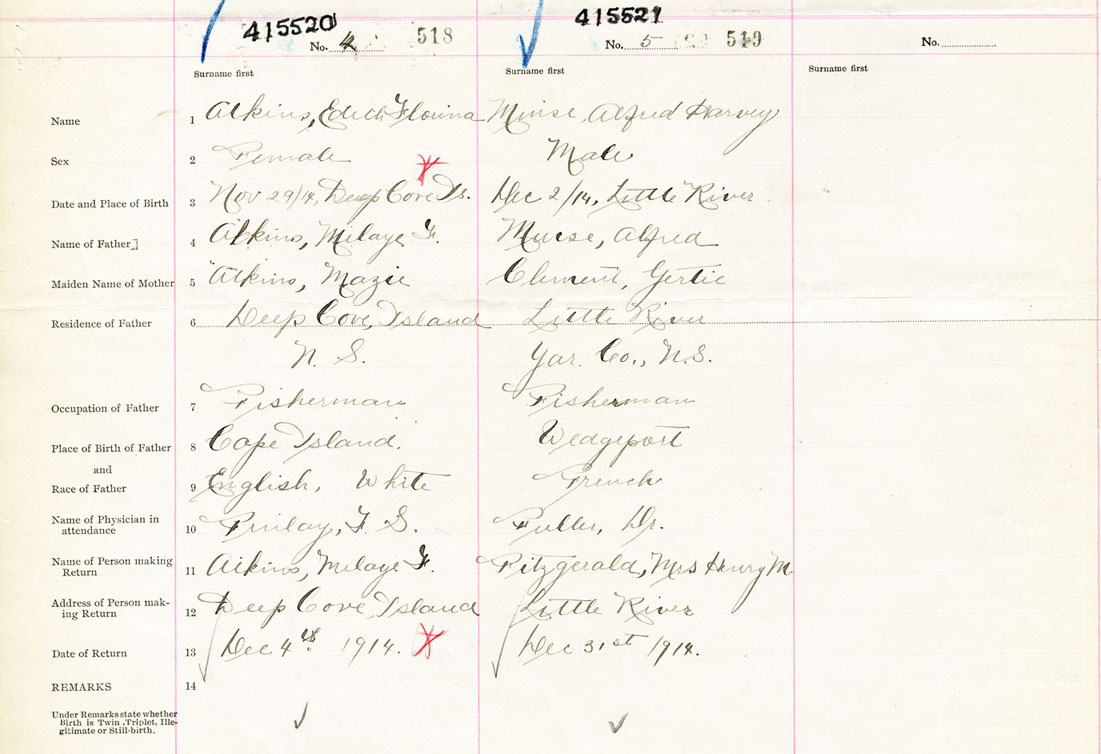 415520 415521
No. 4 518 No. 5 519 No.
Surname first Surname first Surname first
Name 1 Atkins, Edith Florina Muise, Alfred Harvey
Sex 2 Female Male
Date and Place of Birth 3 Nov 29/14, Deep Cove Is. Dec 2/14, Little River
Name of Father 4 Atkins, Milaye F. Muise, Alfred
Maiden Name of Mother 5 Atkins, Mazie Clement, Gertie
Residence of Father 6 Deep Cove, Island Little River
N. S. Yar. Co., N.S.
Occupation of Father 7 Fisherman Fisherman
Place of Birth of Father 8 Cape Island. Wedgeport
and
Race of Father 9 English, White French
Name of Physician in
attendance 10 Finlay, F. S. Fuller, Dr.
Name of Person making
Return 11 Atkins, Milaye F. Fitzgerald, Mrs Henry M.
Address of Person mak-
ing Return 12 Deep Cove, Island Little River
Date of Return 13 Dec 4th 1914. Dec 31st 1914.
REMARKS 14
Under Remarks state whether
Birth is Twin, Triplet, Ille-
gitimate or Still-birth.